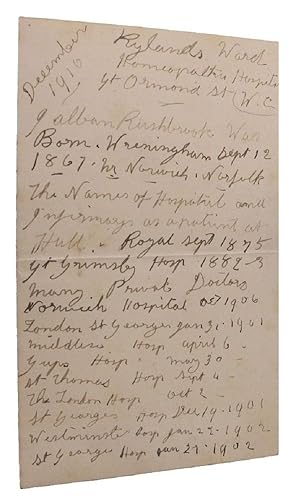 December
1910
Rylands Ward
Homeopathic Hospital
Gt Ormond St W.C
I alban Rushbrook Was
Born. Wreningham Sept 12
1867. Nr Norwich. Norfolk
The Names of Hospital and
Infirmarys as a patient at
Hull - Royal Sept 1875
Gt Grimsby Hosp 1882-3
Many Privat Doctors
Norwich Hospital Oct 1906
London St Georges Jan 31. 1901
Middlesx Hosp april 6 -
Guys Hosp - may 30 -
St Thomas Hosp Sept 4 -
The London Hosp Oct 2 -
St Georges Hosp Dec 19. 1901
Westminster Hosp Jan 22 - 1902
St Georges Hosp Jan 27. 1902